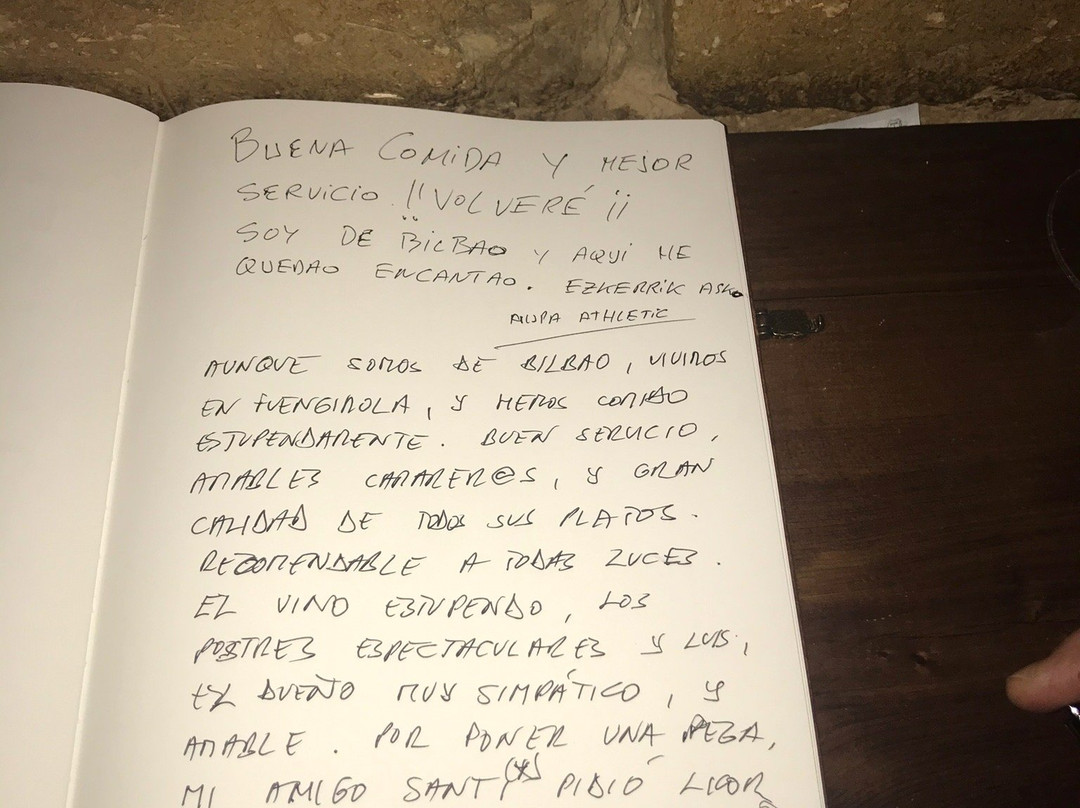 BUENA COMIDA Y MEJOR
SERVICIO. !!VOLVERÉ ¡¡
SOY DE BILBAO Y AQUI ME
QUEDAO ENCANTAO. EZKERRIK ASKO
AUPA ATHLETIC
AUNQUE SOMOS DE BILBAO, VIVIMOS
EN FUENGIROLA, Y HEMOS COMIDO
ESTUPENDAMENTE. BUEN SERVICIO,
AMABLES CAMARER@S, Y GRAN
CALIDAD DE TODOS SUS PLATOS.
RECOMENDABLE A TODAS LUCES.
EL VINO ESTUPENDO, LOS
POSTRES ESPECTACULARES Y LUIS,
EL DUEÑO MUY SIMPÁTICO, Y
AMABLE. POR PONER UNA PEGA,
MI AMIGO SANTY (*) PIDIÓ LICOR